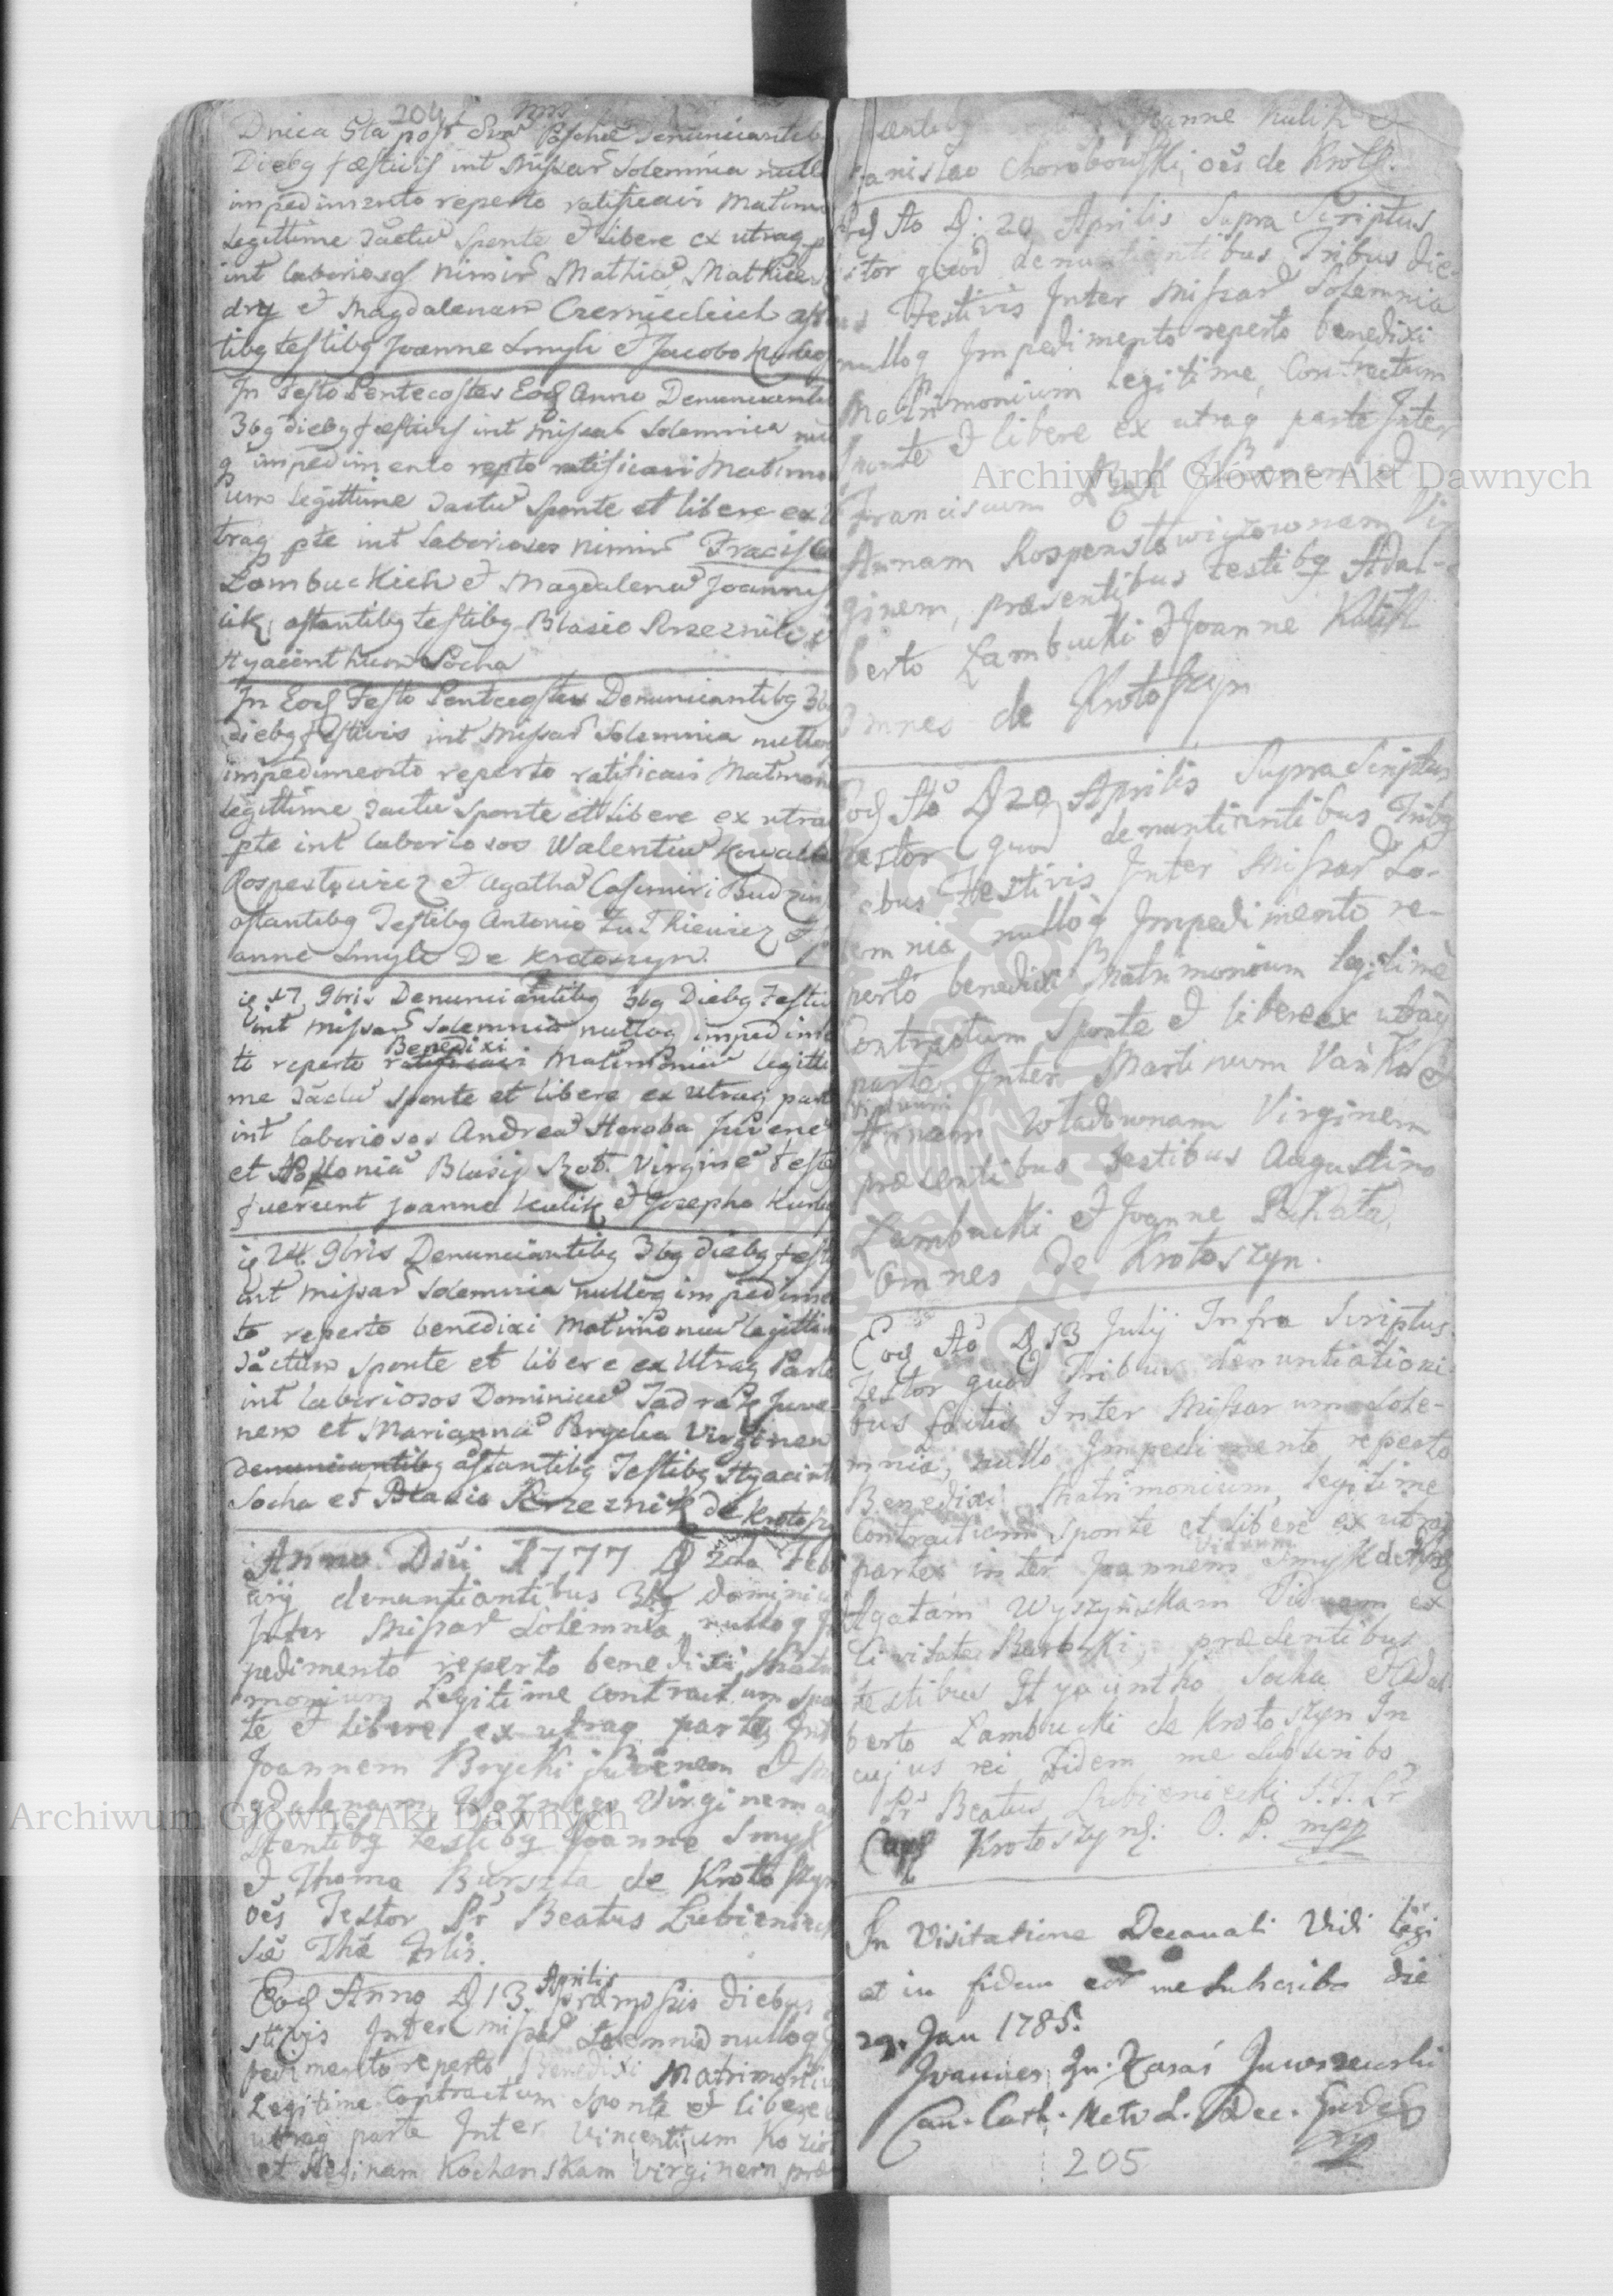 204
Dnica 5ta post Paschae Denunciantib
Diebg festivis int Missar Solemnia null
impedimento reperto ratificavi Matimo
Legittime Sactu Sponte et libere ex utraq p
int laboriosos nimir Mathia Mathie
et Magdalenam
tibg testibg Joanne Smyk et Jacobo
In Festo Pentecostes Eod Anno Denunciantib
3bg diebg festivis int Missar Solemnia nul
q impedimento repto ratificavi Matimo
um legittime Sactu Sponte et libere ex u
traq pte int laboriosos nimir Fracisc
Lambuckich et Magdalena Joannis
cik, astantibg testibg Blasio Rzeznik et
Hyacinthum Socha
In Eod Festo Pentecostes Denunciantibg 3b
diebg festivis int Missar Solemnia nulloq
impedimento reperto ratificavi Matimon
legittime Sactu Sponte et libere ex utra
pte int laboriosos Walentiu Kowal
et Agatha Casimiri Budzin
astantibg Testibg Antonio et Jo
anne Smyk De Krotoszyn.
17 9bris Denunciantibg 3bg Diebg Festiv
int Missar Solemnia nulloq impedime
Benedixi
to reperto ratificavi Matimoniu legitti
me Sactu Sponte et libere ex Utraq part
int laboriosos Andrea Haraba Juvene
et Apollonia Blasij Virgine teste
fuerunt Joanne Kulik et Josepho
24. 9bris Denunciantibg 3bg diebg festi
int missar Solemnia nulloq impedime
to reperto benedixi Matimoniu legittim
Sactum Sponte et libere ex Utraq Parte
int laboriosos Dominicu Juve
nem et Marianna Brycka Virginem
denunciantibg astantibg Testibg Hyacint
Socha et Blasio Rzeznik de Krotoszy
Anno Dni 1777 D 2da Feb
arij denuntiantibus 3bg dominic
Inter Missar Solemnia nulloq Im
pedimento reperto benedixi Matri
monium Legitime contractum spon
te et libere ex utraq parte Int
Joannem Brycki juvenem et Ma
gdalenam Virginem as
stentibg testibg Joanne Smyk
et Thoma Burszta de Krotoszyn
oes Testor Pr Beatus Lubieniecki
Sae Thae
Aprilis
Eod Anno D 13. praemissis diebus fe
stivis Inter missar Solemnia nulloq Im
pedimento reperto Benedixi Matrimoniu
Legitime Contractum Sponte et libere
utraq parte Inter Vincentium Kozio
et Reginam Kochanskam Virginem prae
sentibg Joanne Kulik et
Stanislao Chorobowski, oes de Krotk.
Eod Ao D: 20 Aprilis Supra Scriptus
Testor quod denuntiantibus Tribus die-
bus Festivis Inter Missar Solemnia
nulloq Impedimento reperto benedixi
Matrimonium legitime Contractum
Sponte et libere ex utraq parte Inter
Franciscum Juvenem et
Annam Rospenstowiczownam Vir
ginem, praesentibus testibg Adal-
berto Lambucki et Joanne Kulik
Omnes de Krotoszyn
Eod Ao D 20 Aprilis Supra Scriptus
Testor quod denuntiantibus Tribg
Diebus Festivis Inter Missar So-
lemnia nulloq Impedimento re-
perto benedixi Matrimonium legitime
Contractum Sponte et libere ex utraq
parte Inter Martinum Vańka et
Viduum
Annam Wladownam Virginem
praesentibus testibus Augustino
Lambucki et Joanne
Omnes de Krotoszyn.
Eod Ao D 13 Julij Infra Scriptus
Testor quod Tribus denuntiationi-
bus factis Inter Missarum Sole-
mnia, nullo Impedimento reperto
Benedixi Matrimonium, legitime
Contractum sponte et libere ex utraq
Viduum
parte inter Joannem Smyk
Agatam Wyszynskam Viduam ex
Civitate praesentibus
testibus Hyacintho Socha et Adal
berto Lambucki de Krotoszyn In
cujus rei Fidem me Subscribo
Pr Beatus Lubieniecki S. T. Lr
Krotoszyn: O. P. mpp
In Visitatione Decanali Vidi legi
et in fidem eor me Subscribo die
29. Jan 1785.
Joannes
Can. Cath.
205
Archiwum Główne Akt Dawnych
Archiwum Główne Akt Dawnych